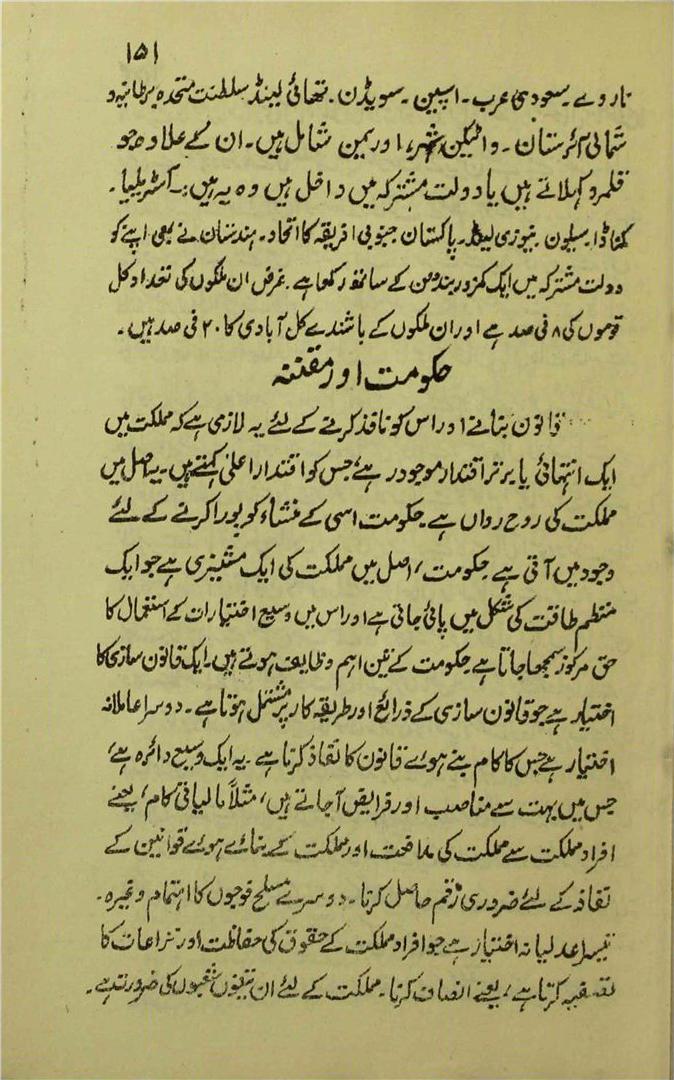 ۱۵۱
ناروے۔ سعودی عرب۔ اسپین۔ سویڈن۔ تھائی لینڈ سلطنت متحدہ برطانیہ و
شمالی آئرستان۔ واٹیکن شہر، اور یمن شامل ہیں۔ ان کے علاوہ جو
قلمرو کہلاتے ہیں یا دولت مشترکہ میں داخل ہیں وہ یہ ہیں:۔ آسٹریلیا۔
کناڈا۔ سیلون۔ نیوزی لینڈ۔ پاکستان جنوبی افریقہ کا اتحاد۔ ہندستان نے بھی اپنے کو
دولت مشترکہ میں ایک کمزور بندھن کے ساتھ رکھا ہے۔ غرض ان ملکوں کی تعداد کل
قوموں کی ۸ فی صد ہے اور ان ملکوں کے باشندے کل آبادی کا ۲۰ فی صد ہیں۔
حکومت اور مقننہ
قانون بنانے اور اس کو نافذ کرنے کے لئے یہ لازمی ہے کہ مملکت میں
ایک انتہائی یا برتر اقتدار موجود رہے جس کو اقتدار اعلیٰ کہتے ہیں۔ یہ اصل میں
مملکت کی روح رواں ہے۔ حکومت اسی کے منشاء کو پورا کرنے کے لئے
وجود میں آتی ہے۔ حکومت، اصل میں مملکت کی ایک مشینری ہے جو ایک
منظم طاقت کی شکل میں پائی جاتی ہے اور اس میں وسیع اختیارات کے استعمال کا
حق مرکوز سمجھا جاتا ہے۔ حکومت کے تین اہم وظایف ہوتے ہیں۔ ایک قانون سازی کا
اختیار ہے جو قانون سازی کے ذرائع اور طریقہ کار پر مشتمل ہوتا ہے۔ دوسرا عاملانہ
اختیار ہے جس کا کام بنے ہوے قانون کا نفاذ کرنا ہے۔ یہ ایک وسیع دائرہ ہے،
جس میں بہت سے مناصب اور فرایض آجاتے ہیں، مثلاً مالیاتی کام، یعنے
افراد مملکت سے مملکت کی مدافعت اور مملکت کے بنائے ہوے قوانین کے
نفاذ کے لئے ضروری رقم حاصل کرنا۔ دوسرے مسلح فوجوں کا اہتمام وغیرہ۔
تیسرا عدلیانہ اختیار ہے جو افراد مملکت کے حقوق کی حفاظت اور نزاعات کا
تصفیہ کرتا ہے، یعنے انصاف کرنا۔ مملکت کے لئے ان تینوں شعبوں کی ضرورت ہے۔